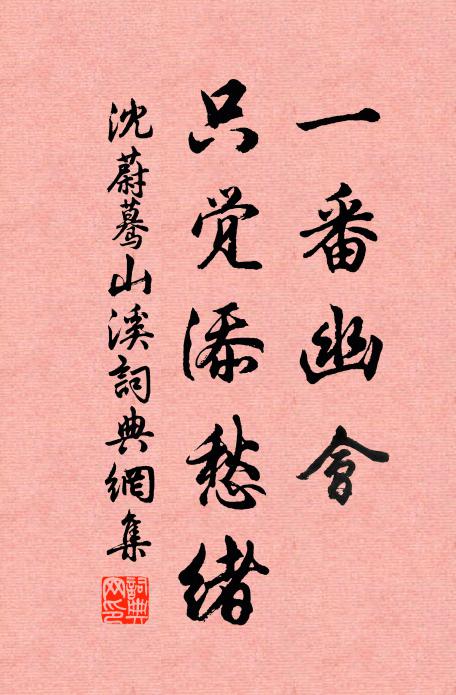 一番幽會
只觉添愁緒
沈蔚驀山溪詞典網集
詞典網印